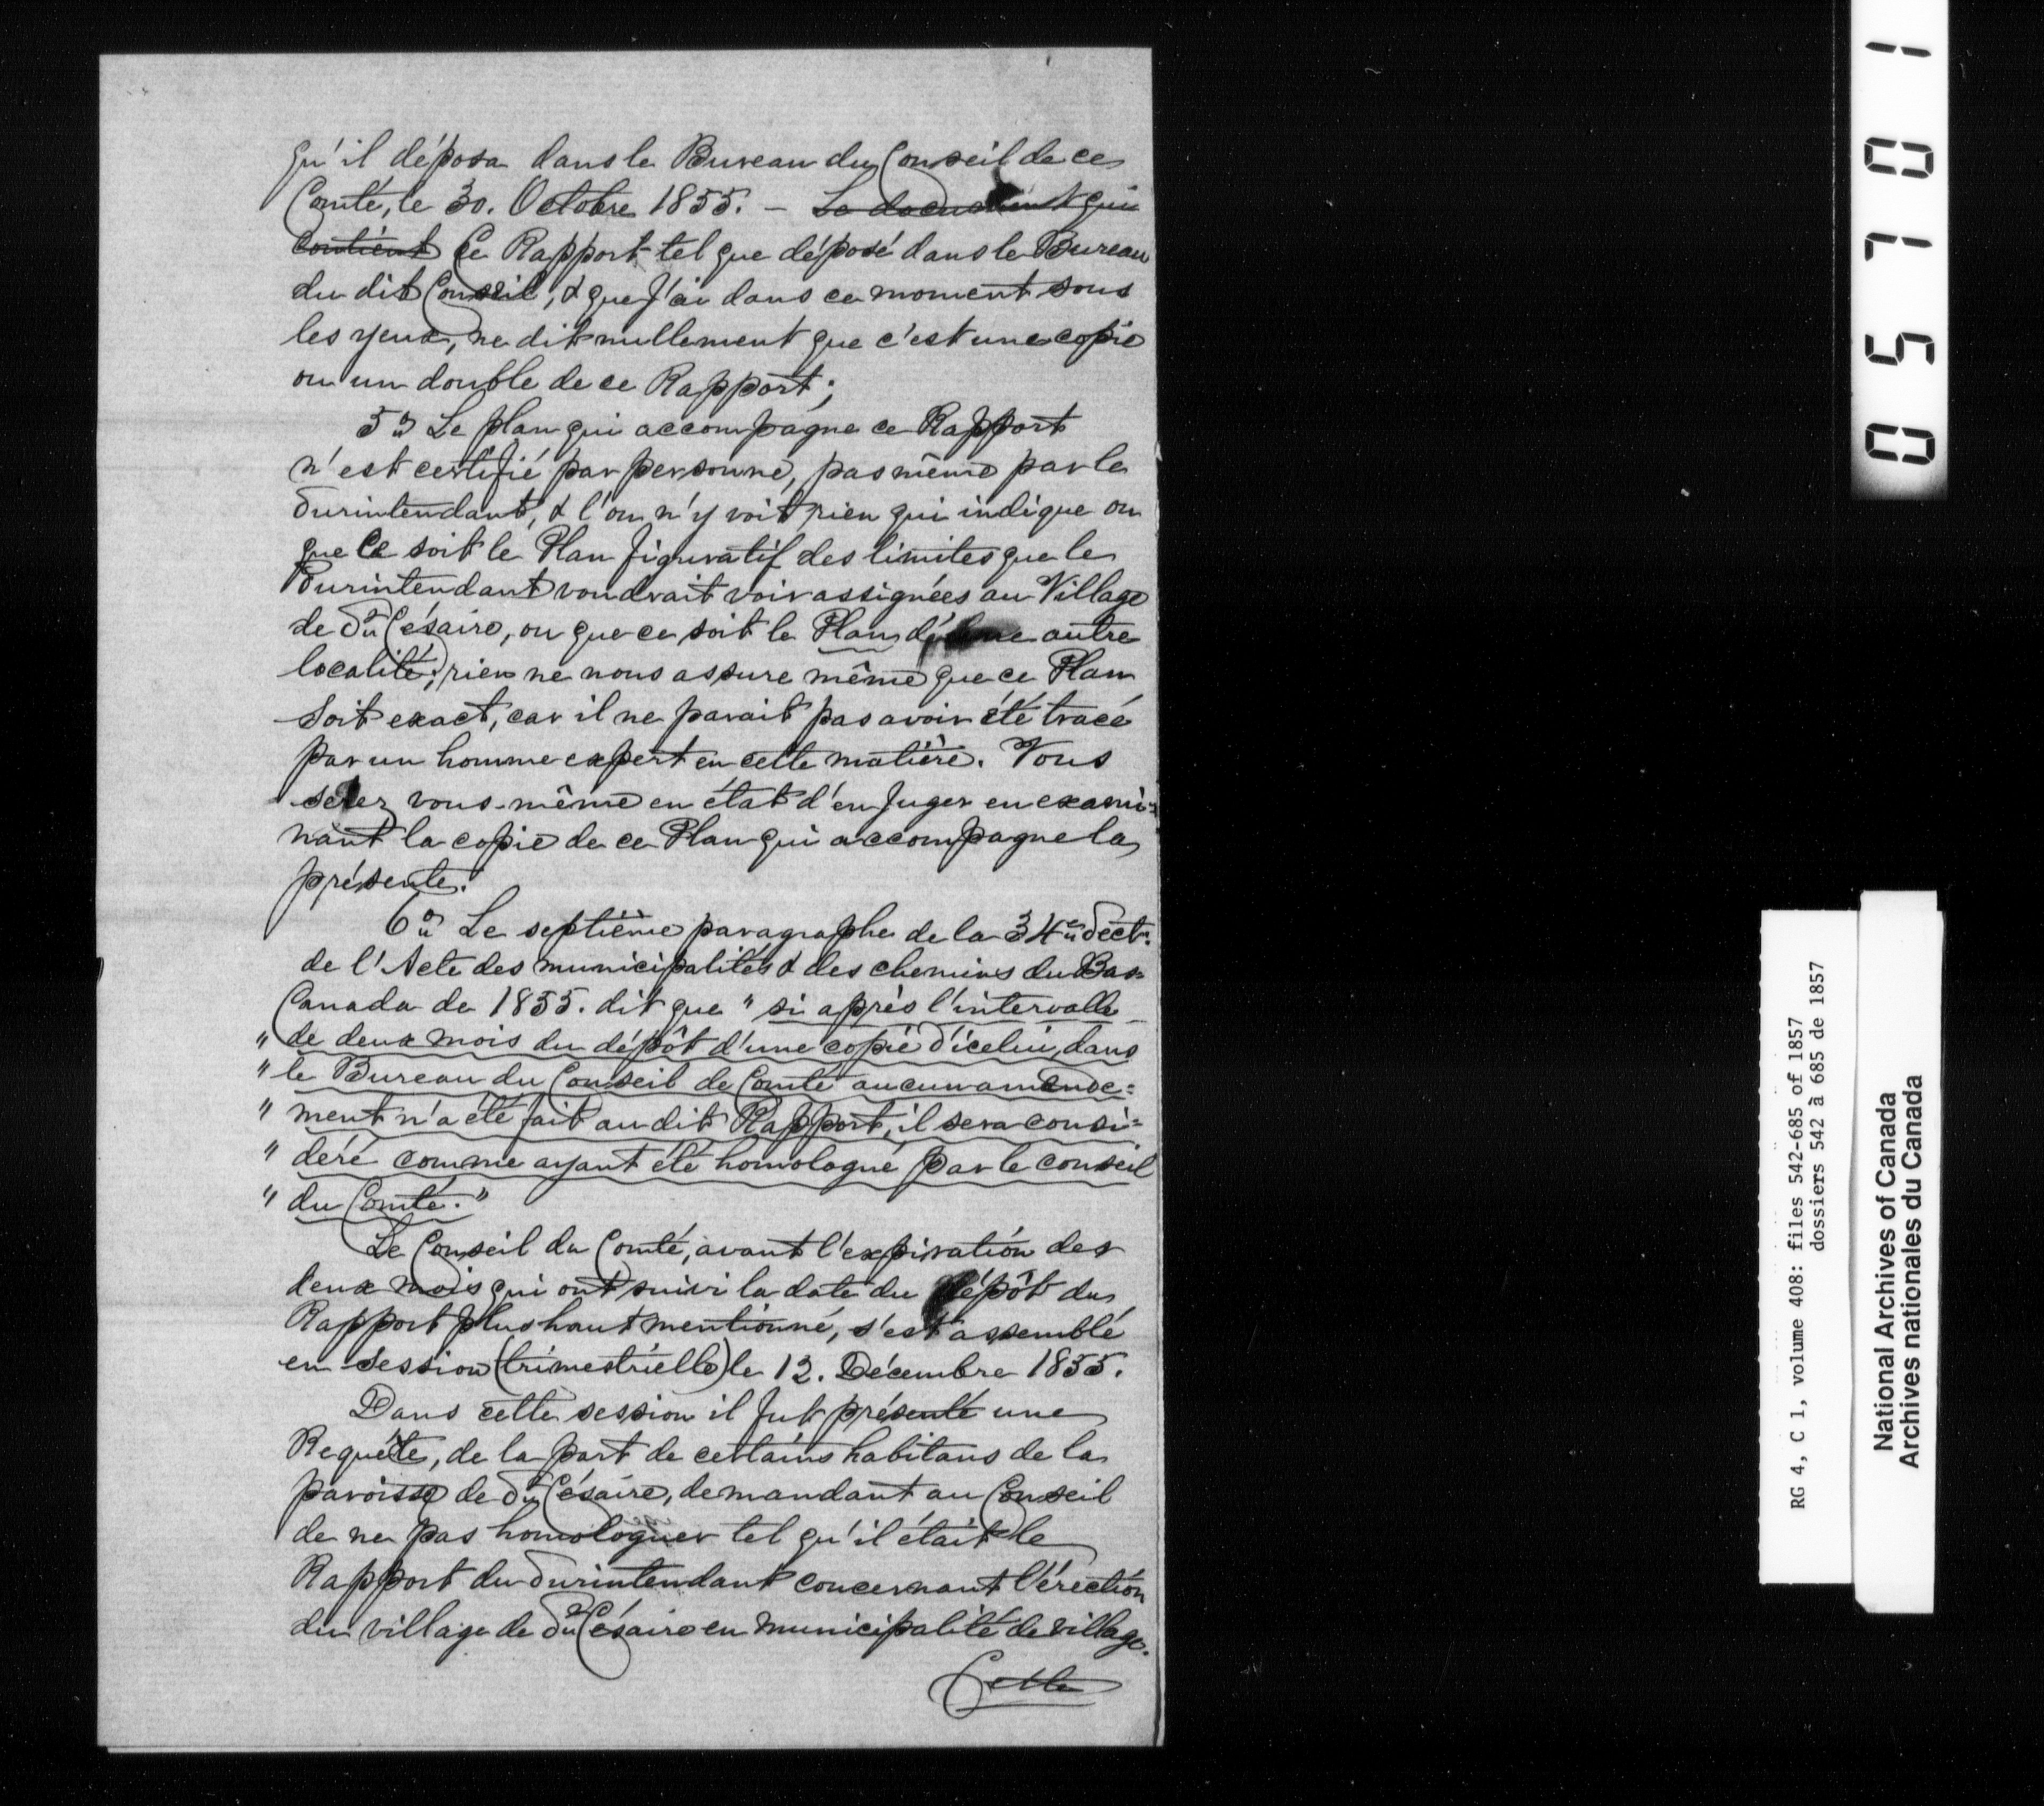 qu'il déposa dans le Bureau du Conseil de ce
Comté, le 30. Octobre 1855. — Le document qui
contient Ce Rapport tel que déposé dans le Bureau
du dit Conseil, & que j'ai dans ce moment sous
les yeux, ne dit nullement que c'est une copie
ou un double de ce Rapport;
5o Le plan qui accompagne ce Rapport
n'est certifié par personne, pas même par le
Surintendant, & l'on n'y voit rien qui indique ou
que ce soit le Plan figuratif des limites que le
Surintendant voudrait voir assignées au Village
de St Césaire, ou que ce soit le Plan d'une autre
localité; rien ne nous assure même que ce Plan
soit exact, car il ne parait pas avoir été tracé
par un homme expert en cette matière. Vous
serez vous-même en état d'en juger en exami=
nant la copie de ce Plan qui accompagne la
présente.
6o Le septième paragraphe de la 34e Sectn
de l'Acte des municipalités & des chemins du Bas-
Canada de 1855. dit que " si après l'intervalle
" de deux mois du dépôt d'une copie d'icelui, dans
" le Bureau du Conseil de Comté aucun amende=
" ment n'a été fait au dit Rapport, il sera consi=
" déré comme ayant été homologué par le conseil
" du Comté."
Le Conseil du Comté, avant l'expiration des
deux mois qui ont suivi la date du dépôt du
Rapport plus haut mentionné, s'est assemblé
en session (trimestrielle) le 12. Décembre 1855.
Dans cette session il fut présenté une
Requête, de la part de certains habitans de la
paroisse de St Césaire, demandant au Conseil
de ne pas homologuer tel qu'il était le
Rapport du Surintendant concernant l'érection
du village de St Césaire en municipalité de village.
Cette
05701
RG 4, C 1, volume 408: files 542-685 of 1857
dossiers 542 à 685 de 1857
National Archives of Canada
Archives nationales du Canada